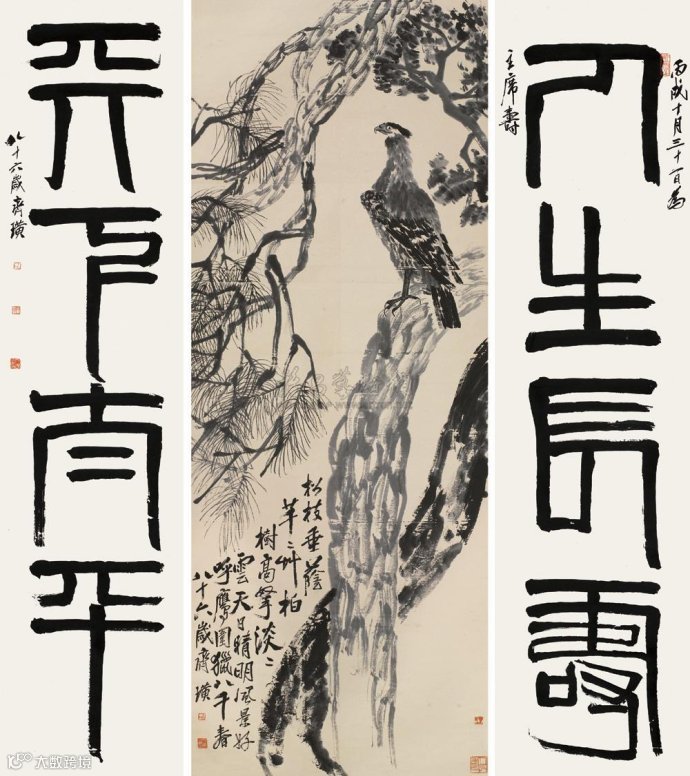 丙戌十月三十一日為
主席壽
人生長壽
松枝垂蔭
芊〻艸柏
樹高擎淡〻
雲天日晴明風景好
呼鷹圍獵八千春
八十六歲齊璜
天下太平
八十六歲齊璜
大数跨境